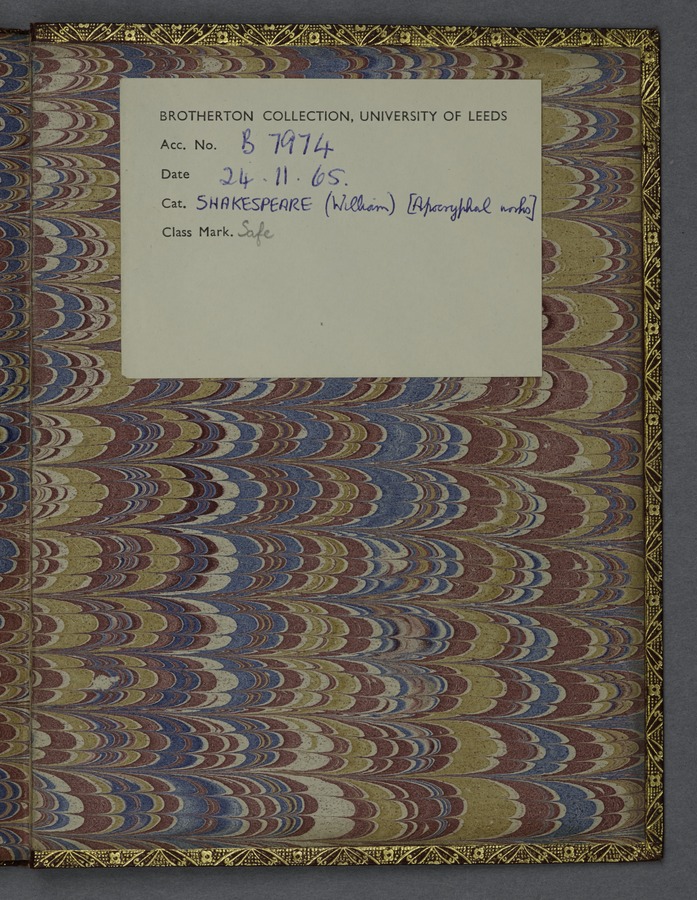 BROTHERTON COLLECTION, UNIVERSITY OF LEEDS
Acc. No. B 7974
Date 24.11.65.
Cat. SHAKESPEARE (William) [Apocryphal works]
Class Mark. Safe